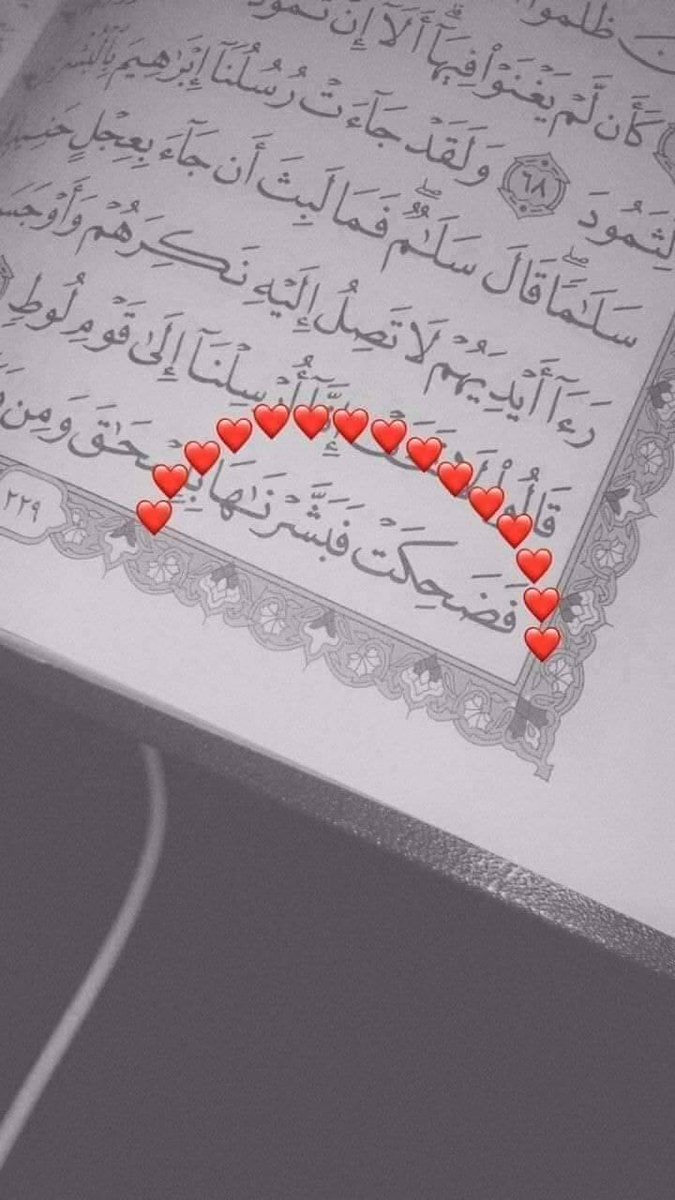 ظلموا
كَأَن لَّمْ يَغْنَوْا۟ فِيهَآ ۗ أَلَآ إِنَّ ثَمُودَا۟
لِّثَمُودَ ٦٨ وَلَقَدْ جَآءَتْ رُسُلُنَآ إِبْرَٰهِيمَ بِٱلْبُشْرَىٰ
سَلَـٰمًا ۖ قَالَ سَلَـٰمٌ ۖ فَمَا لَبِثَ أَن جَآءَ بِعِجْلٍ
رَءَآ أَيْدِيَهُمْ لَا تَصِلُ إِلَيْهِ نَكِرَهُمْ وَأَوْجَسَ
قَالُوا۟ أُرْسِلْنَآ إِلَىٰ قَوْمِ لُوطٍ
فَضَحِكَتْ فَبَشَّرْنَـٰهَا بِإِسْحَـٰقَ وَمِن
٢٢٩